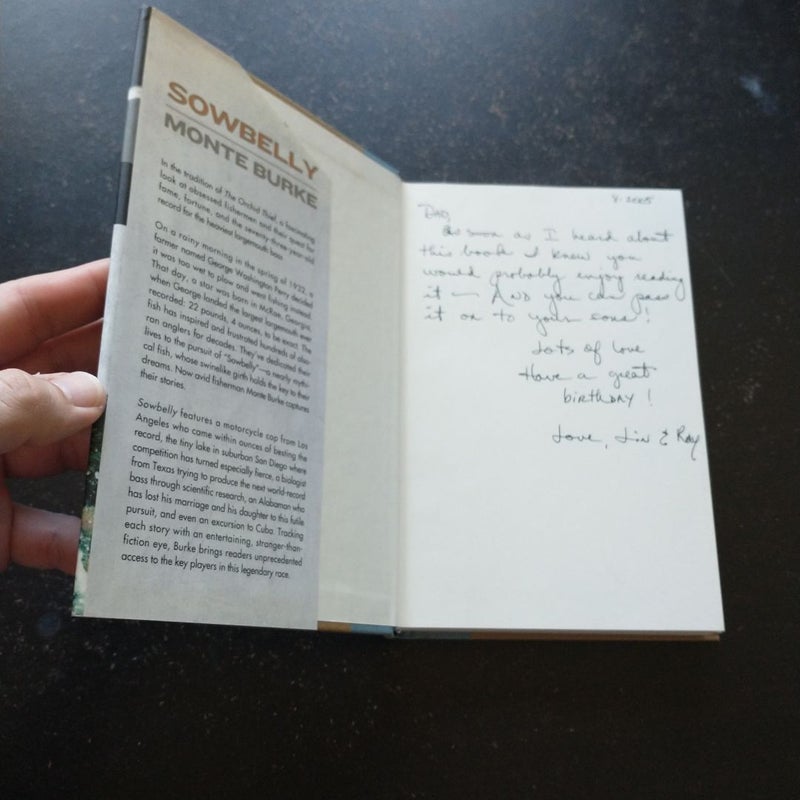 SOWBELLY
MONTE BURKE
In the tradition of The Orchid Thief, a fascinating
look at obsessed fishermen and their quest for
fame, fortune, and the seventy-three-year-old
record for the heaviest largemouth bass
On a rainy morning in the spring of 1932, a
farmer named George Washington Perry decided
it was too wet to plow and went fishing instead.
That day, a star was born in McRae, Georgia,
when George landed the largest largemouth ever
recorded: 22 pounds, 4 ounces, to be exact. The
fish has inspired and frustrated hundreds of obses-
run anglers for decades. They've dedicated their
lives to the pursuit of "Sowbelly"—a nearly mythi-
cal fish, whose swinelike girth holds the key to their
dreams. Now avid fisherman Monte Burke captures
their stories.
Sowbelly features a motorcycle cop from Los
Angeles who came within ounces of besting the
record, the tiny lake in suburban San Diego where
competition has turned especially fierce, a biologist
from Texas trying to produce the next world-record
bass through scientific research, an Alabaman who
has lost his marriage and his daughter to this futile
pursuit, and even an excursion to Cuba. Tracking
each story with an entertaining, stranger-than-
fiction eye, Burke brings readers unprecedented
access to the key players in this legendary race.
4-2005
DAD,
As soon as I heard about
this book I knew you
would probably enjoy reading
it — And you can pass
it on to your sons!
Lots of love
Have a great
birthday!
Love, Lin & Ray